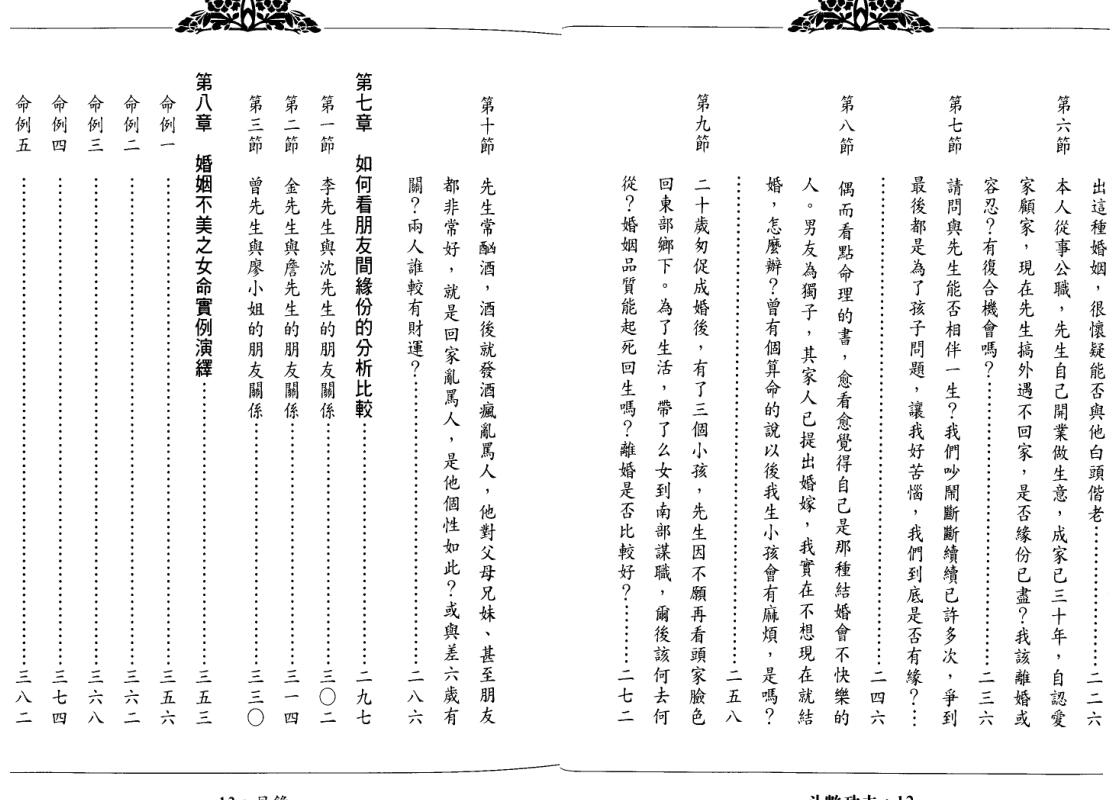 出這種婚姻，很懷疑能否與他白頭偕老⋯⋯⋯⋯二二六
第六節　本人從事公職，先生自己開業做生意，成家已三十年，自認愛
家顧家，現在先生搞外遇不回家，是否緣份已盡？我該離婚或
容忍？有復合機會嗎？⋯⋯⋯⋯二三六
第七節　請問與先生能否相伴一生？我們吵鬧斷斷續續已許多次，爭到
最後都是為了孩子問題，讓我好苦惱，我們到底是否有緣？⋯
⋯⋯⋯⋯二四六
第八節　偶而看點命理的書，愈看愈覺得自己是那種結婚會不快樂的
人。男友為獨子，其家人已提出婚嫁，我實在不想現在就結
婚，怎麼辦？曾有個算命的說以後我生小孩會有麻煩，是嗎？
⋯⋯⋯⋯二五八
第九節　二十歲匆促成婚後，有了三個小孩，先生因不願再看頭家臉色
回東部鄉下。為了生活，帶了么女到南部謀職，爾後該何去何
從？婚姻品質能起死回生嗎？離婚是否比較好？⋯⋯⋯⋯二七二
第十節　先生常酗酒，酒後就發酒瘋亂罵人，他對父母兄妹、甚至朋友
都非常好，就是回家亂罵人，是他個性如此？或與差六歲有
關？兩人誰較有財運？⋯⋯⋯⋯二八六
第七章　如何看朋友間緣份的分析比較⋯⋯⋯⋯二九七
第一節　李先生與沈先生的朋友關係⋯⋯⋯⋯三〇二
第二節　金先生與詹先生的朋友關係⋯⋯⋯⋯三一四
第三節　曾先生與廖小姐的朋友關係⋯⋯⋯⋯三三〇
第八章　婚姻不美之女命實例演繹⋯⋯⋯⋯三五三
命例一⋯⋯⋯⋯三五六
命例二⋯⋯⋯⋯三六二
命例三⋯⋯⋯⋯三六八
命例四⋯⋯⋯⋯三七四
命例五⋯⋯⋯⋯三八二